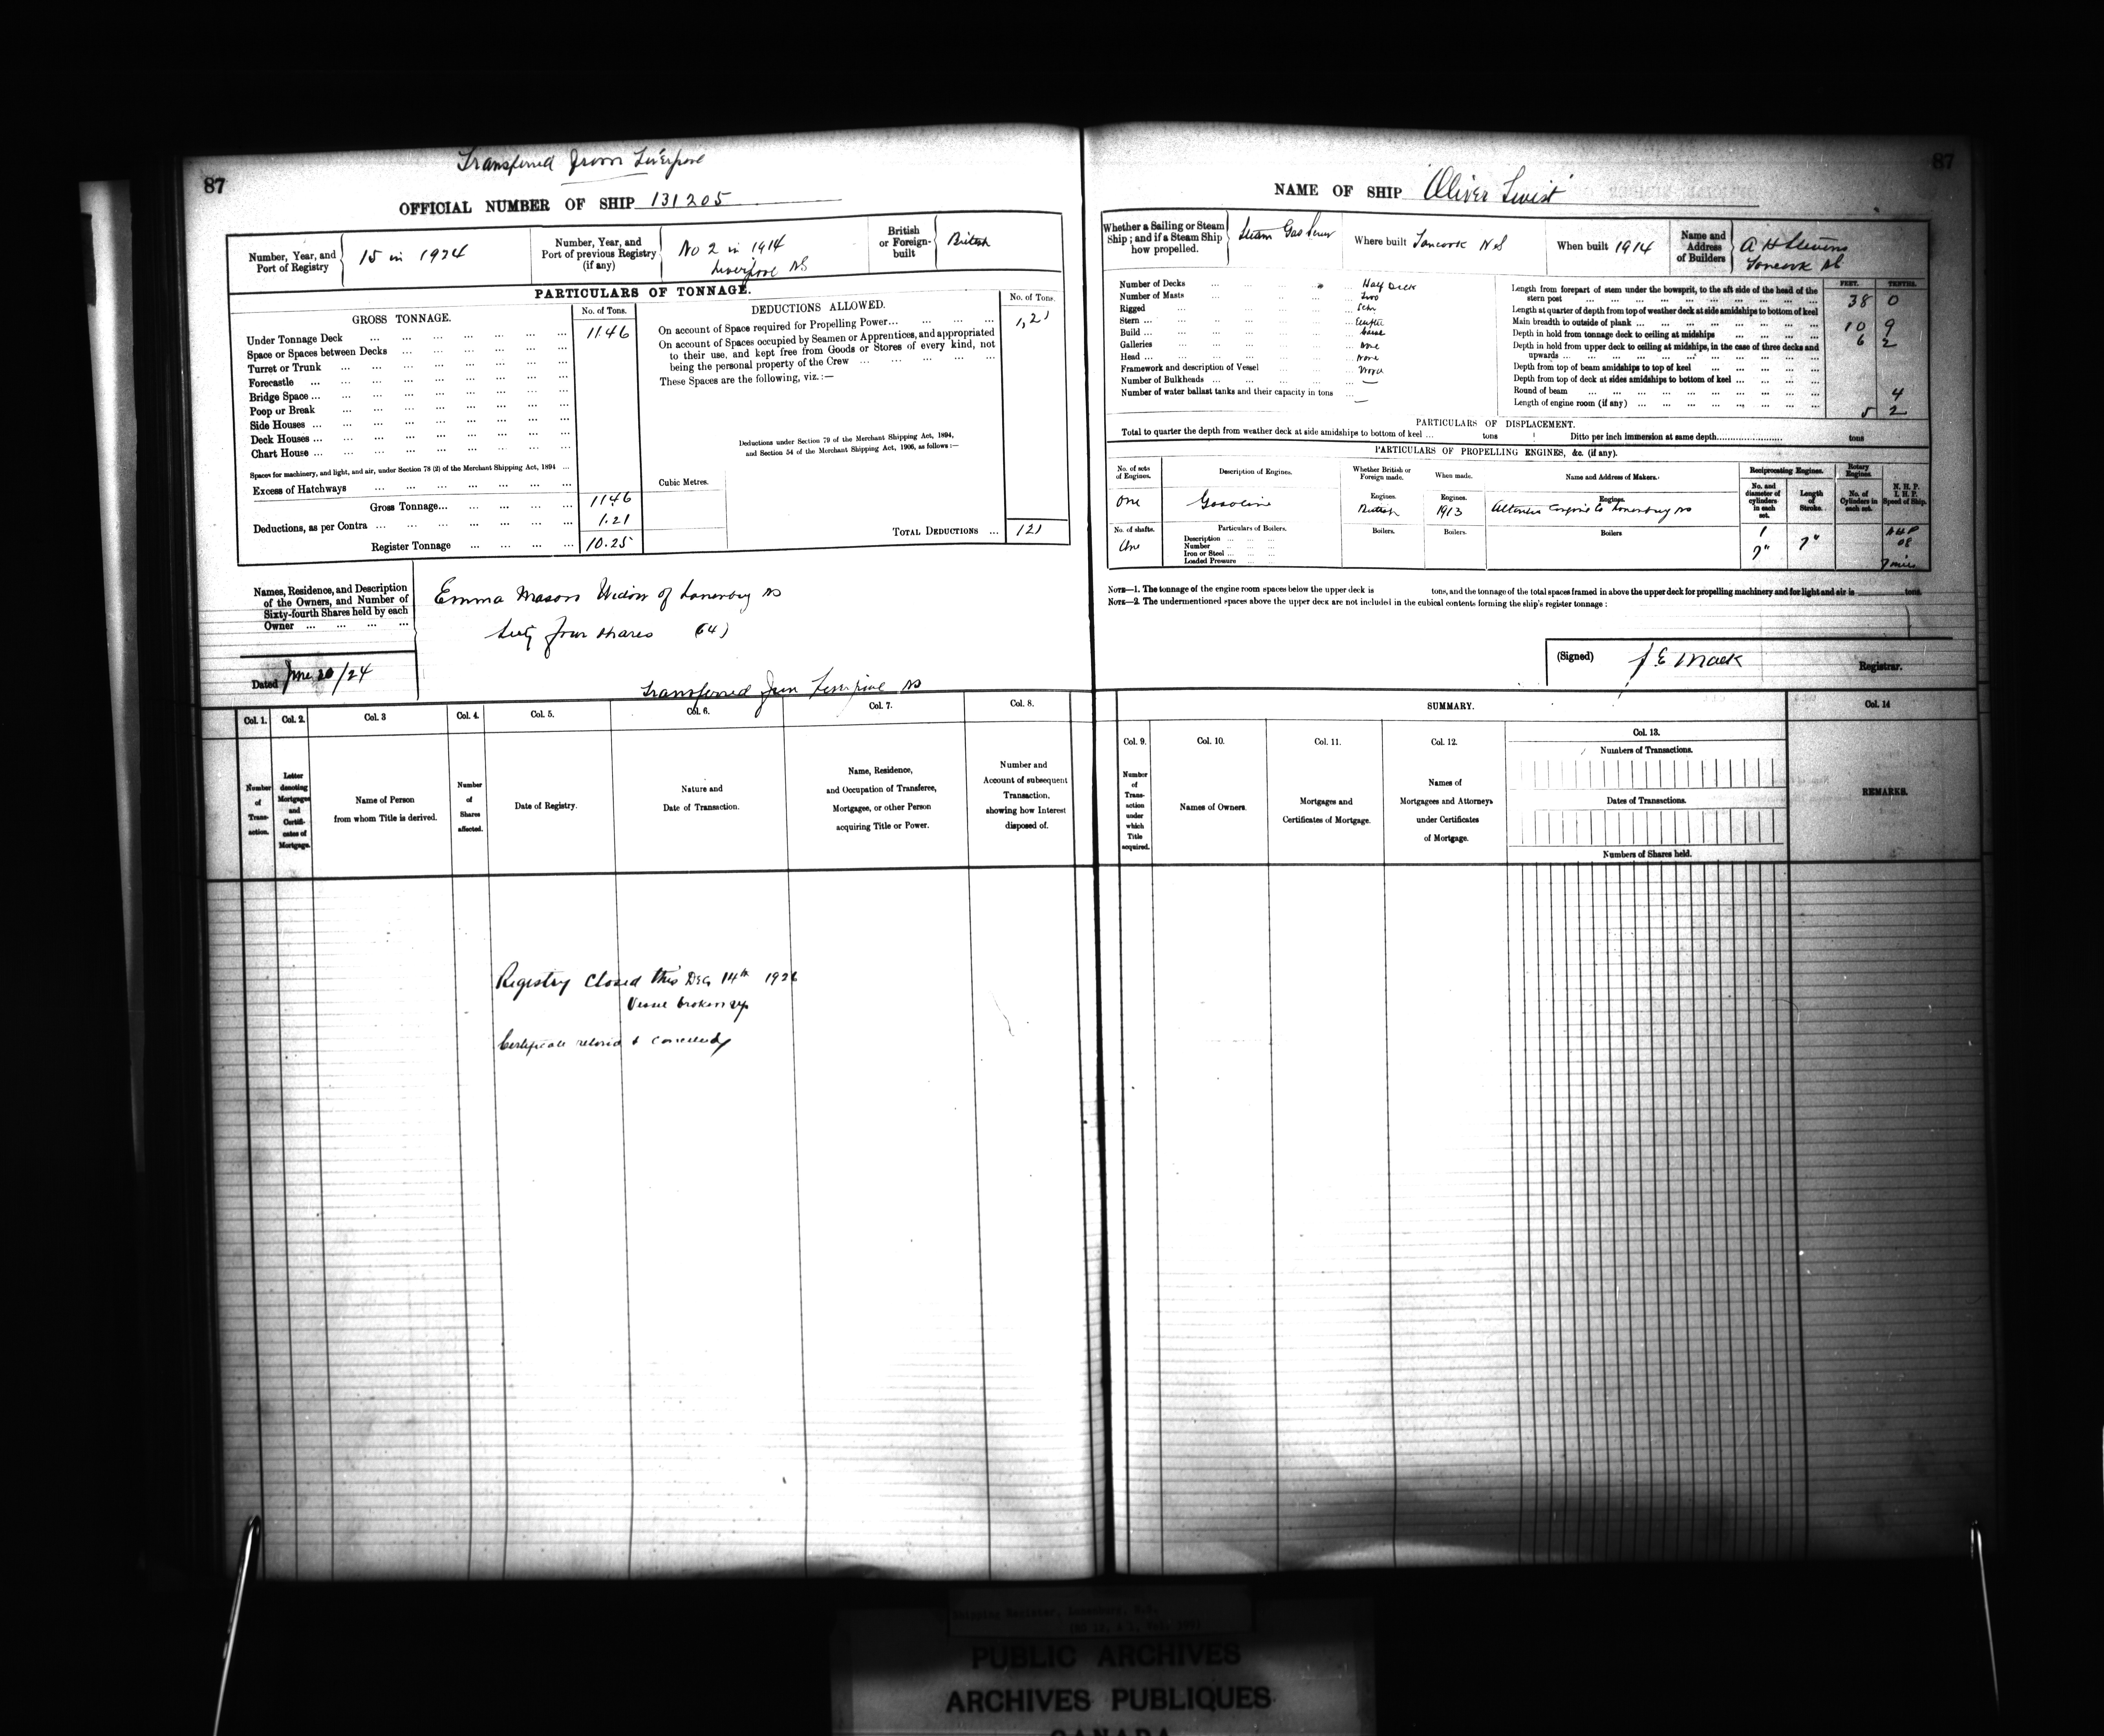 87
Transferred from Liverpool
OFFICIAL NUMBER OF SHIP 131205
Number, Year, and Port of Registry
15 in 1924
Number, Year, and Port of previous Registry (if any)
No 2 in 1914
Liverpool NS
British or Foreign-built
British
PARTICULARS OF TONNAGE.
GROSS TONNAGE.
No. of Tons.
Under Tonnage Deck ... 1146
Space or Spaces between Decks ...
Turret or Trunk ...
Forecastle ...
Bridge Space ...
Poop or Break ...
Side Houses ...
Deck Houses ...
Chart House ...
Spaces for machinery, and light, and air, under Section 78 (2) of the Merchant Shipping Act, 1894 ...
Excess of Hatchways ...
Gross Tonnage... 1146
Deductions, as per Contra ... 1.21
Register Tonnage ... 10.25
DEDUCTIONS ALLOWED.
No. of Tons.
On account of Space required for Propelling Power... 1,21
On account of Spaces occupied by Seamen or Apprentices, and appropriated
to their use, and kept free from Goods or Stores of every kind, not
being the personal property of the Crew ...
These Spaces are the following, viz.:—
Deductions under Section 79 of the Merchant Shipping Act, 1894,
and Section 54 of the Merchant Shipping Act, 1906, as follows:—
Cubic Metres.
TOTAL DEDUCTIONS ... 121
Names, Residence, and Description
of the Owners, and Number of
Sixty-fourth Shares held by each
Owner ...
Emma Mason Widow of Lunenburg NS
Sixty four shares (64)
Dated June 20/24
Transferred from Liverpool NS
Col. 1. Col. 2. Col. 3 Col. 4. Col. 5. Col. 6. Col. 7. Col. 8.
Number of Transaction.
Letter denoting Mortgages and Certificates of Mortgage.
Name of Person from whom Title is derived.
Number of Shares affected.
Date of Registry.
Nature and Date of Transaction.
Name, Residence, and Occupation of Transferee, Mortgagee, or other Person acquiring Title or Power.
Number and Account of subsequent Transaction, showing how Interest disposed of.
Registry Closed this Dec 14th 1926
Vessel broken up
Certificate &
87
NAME OF SHIP "Oliver Twist"
Whether a Sailing or Steam Ship; and if a Steam Ship how propelled.
Steam Gas Screw
Where built Tancook N.S
When built 1914
Name and Address of Builders
A H Stevens
Tancook NS
Number of Decks ... Half Deck
Number of Masts ... Two
Rigged ... Schr
Stern ...
Build ...
Galleries ... None
Head ... None
Framework and description of Vessel ... Wood
Number of Bulkheads ... —
Number of water ballast tanks and their capacity in tons ... —
FEET. TENTHS.
Length from forepart of stem under the bowsprit, to the aft side of the head of the
stern post ... 38 0
Length at quarter of depth from top of weather deck at side amidships to bottom of keel
Main breadth to outside of plank ... 10 9
Depth in hold from tonnage deck to ceiling at midships ... 6 2
Depth in hold from upper deck to ceiling at midships, in the case of three decks and
upwards ...
Depth from top of beam amidships to top of keel ...
Depth from top of deck at sides amidships to bottom of keel ...
Round of beam ... 4
Length of engine room (if any) ... 5 2
PARTICULARS OF DISPLACEMENT.
Total to quarter the depth from weather deck at side amidships to bottom of keel ... tons
Ditto per inch immersion at same depth........................ tons
PARTICULARS OF PROPELLING ENGINES, &c. (if any).
No. of sets of Engines.
Description of Engines.
Whether British or Foreign made.
When made.
Name and Address of Makers.
Reciprocating Engines.
Rotary Engines.
N. H. P. I. H. P. Speed of Ship.
No. and diameter of cylinders in each set.
Length of Stroke.
No. of Cylinders in each set.
One Gasoline
Engines. British
Engines. 1913
Engines. Engine Co Lunenburg NS
No. of shafts. One
Particulars of Boilers.
Description ...
Number ...
Iron or Steel ...
Loaded Pressure ...
Boilers. Boilers. Boilers
1
7" 7"
NHP
08
7 miles
NOTE—1. The tonnage of the engine room spaces below the upper deck is tons, and the tonnage of the total spaces framed in above the upper deck for propelling machinery and for light and air is tons.
NOTE—2. The undermentioned spaces above the upper deck are not included in the cubical contents forming the ship's register tonnage:
(Signed) J E Mack Registrar.
SUMMARY.
Col. 14
Col. 9. Col. 10. Col. 11. Col. 12. Col. 13.
Number of Transaction under which Title acquired.
Names of Owners.
Mortgages and Certificates of Mortgage.
Names of Mortgagees and Attorneys under Certificates of Mortgage.
Numbers of Transactions.
Dates of Transactions.
Numbers of Shares held.
REMARKS.
Shipping Register, Lunenburg, N.S.
PUBLIC ARCHIVES
ARCHIVES PUBLIQUES
CANADA